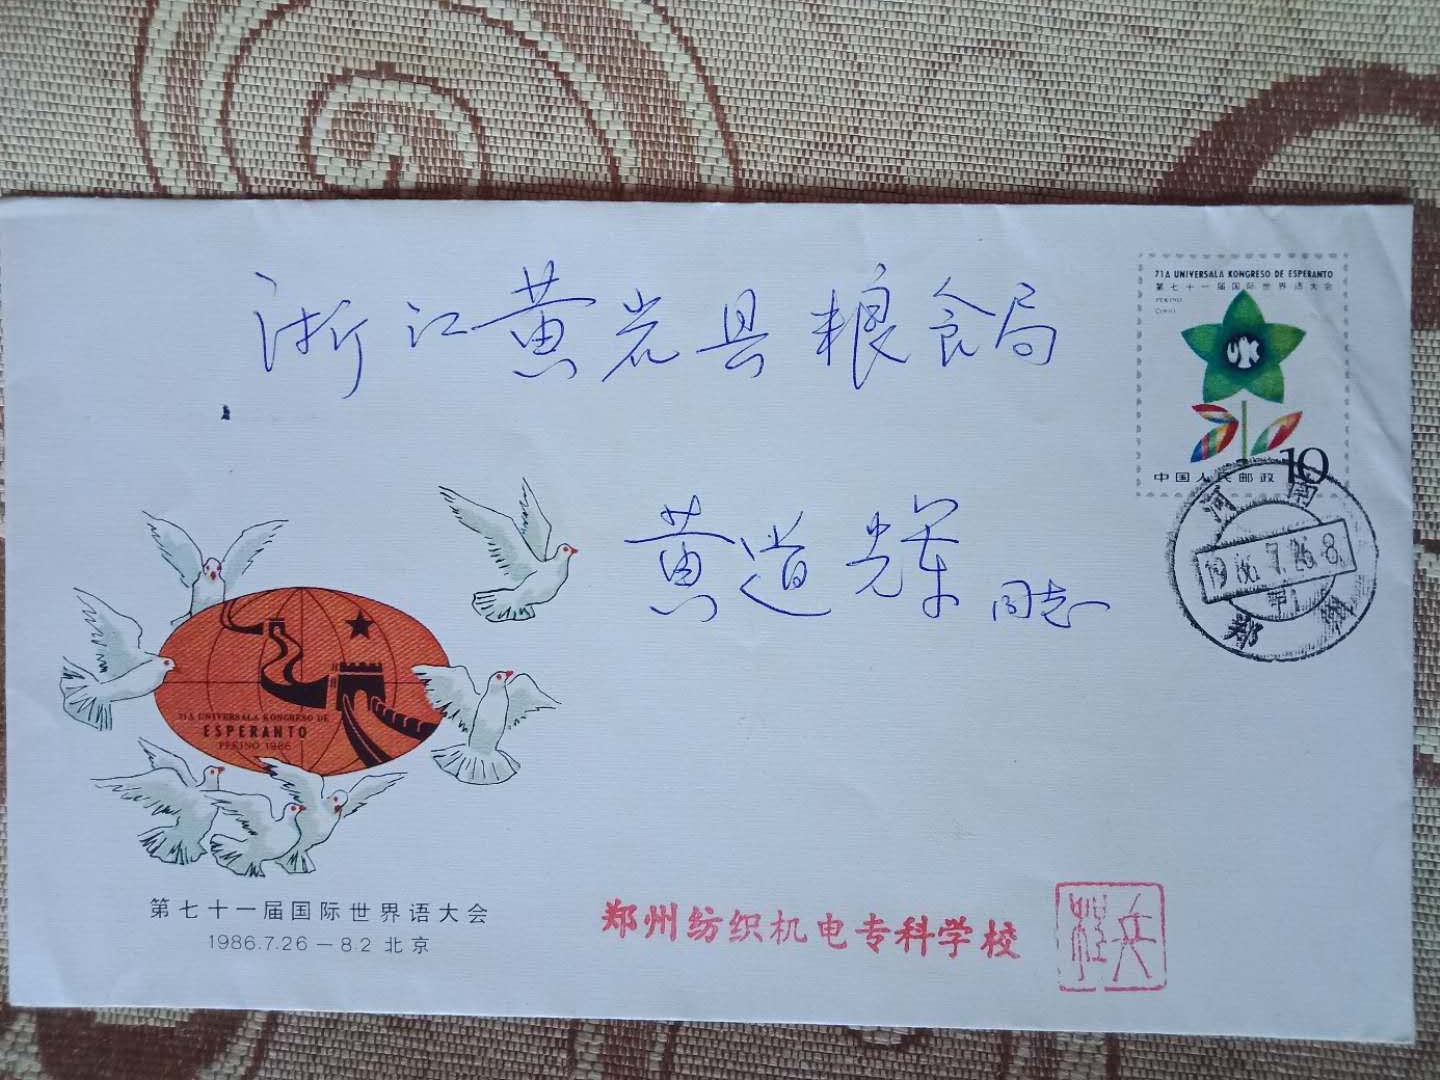 浙江黄岩县粮食局
71A UNIVERSALA KONGRESO DE ESPERANTO
第七十一届国际世界语大会
PEKINO
UK
10
中国人民邮政
河南
1986.7.26.8
郑州
黄道辉同志
71A UNIVERSALA KONGRESO DE
ESPERANTO
PEKINO 1986
第七十一届国际世界语大会
1986.7.26－8.2 北京
郑州纺织机电专科学校